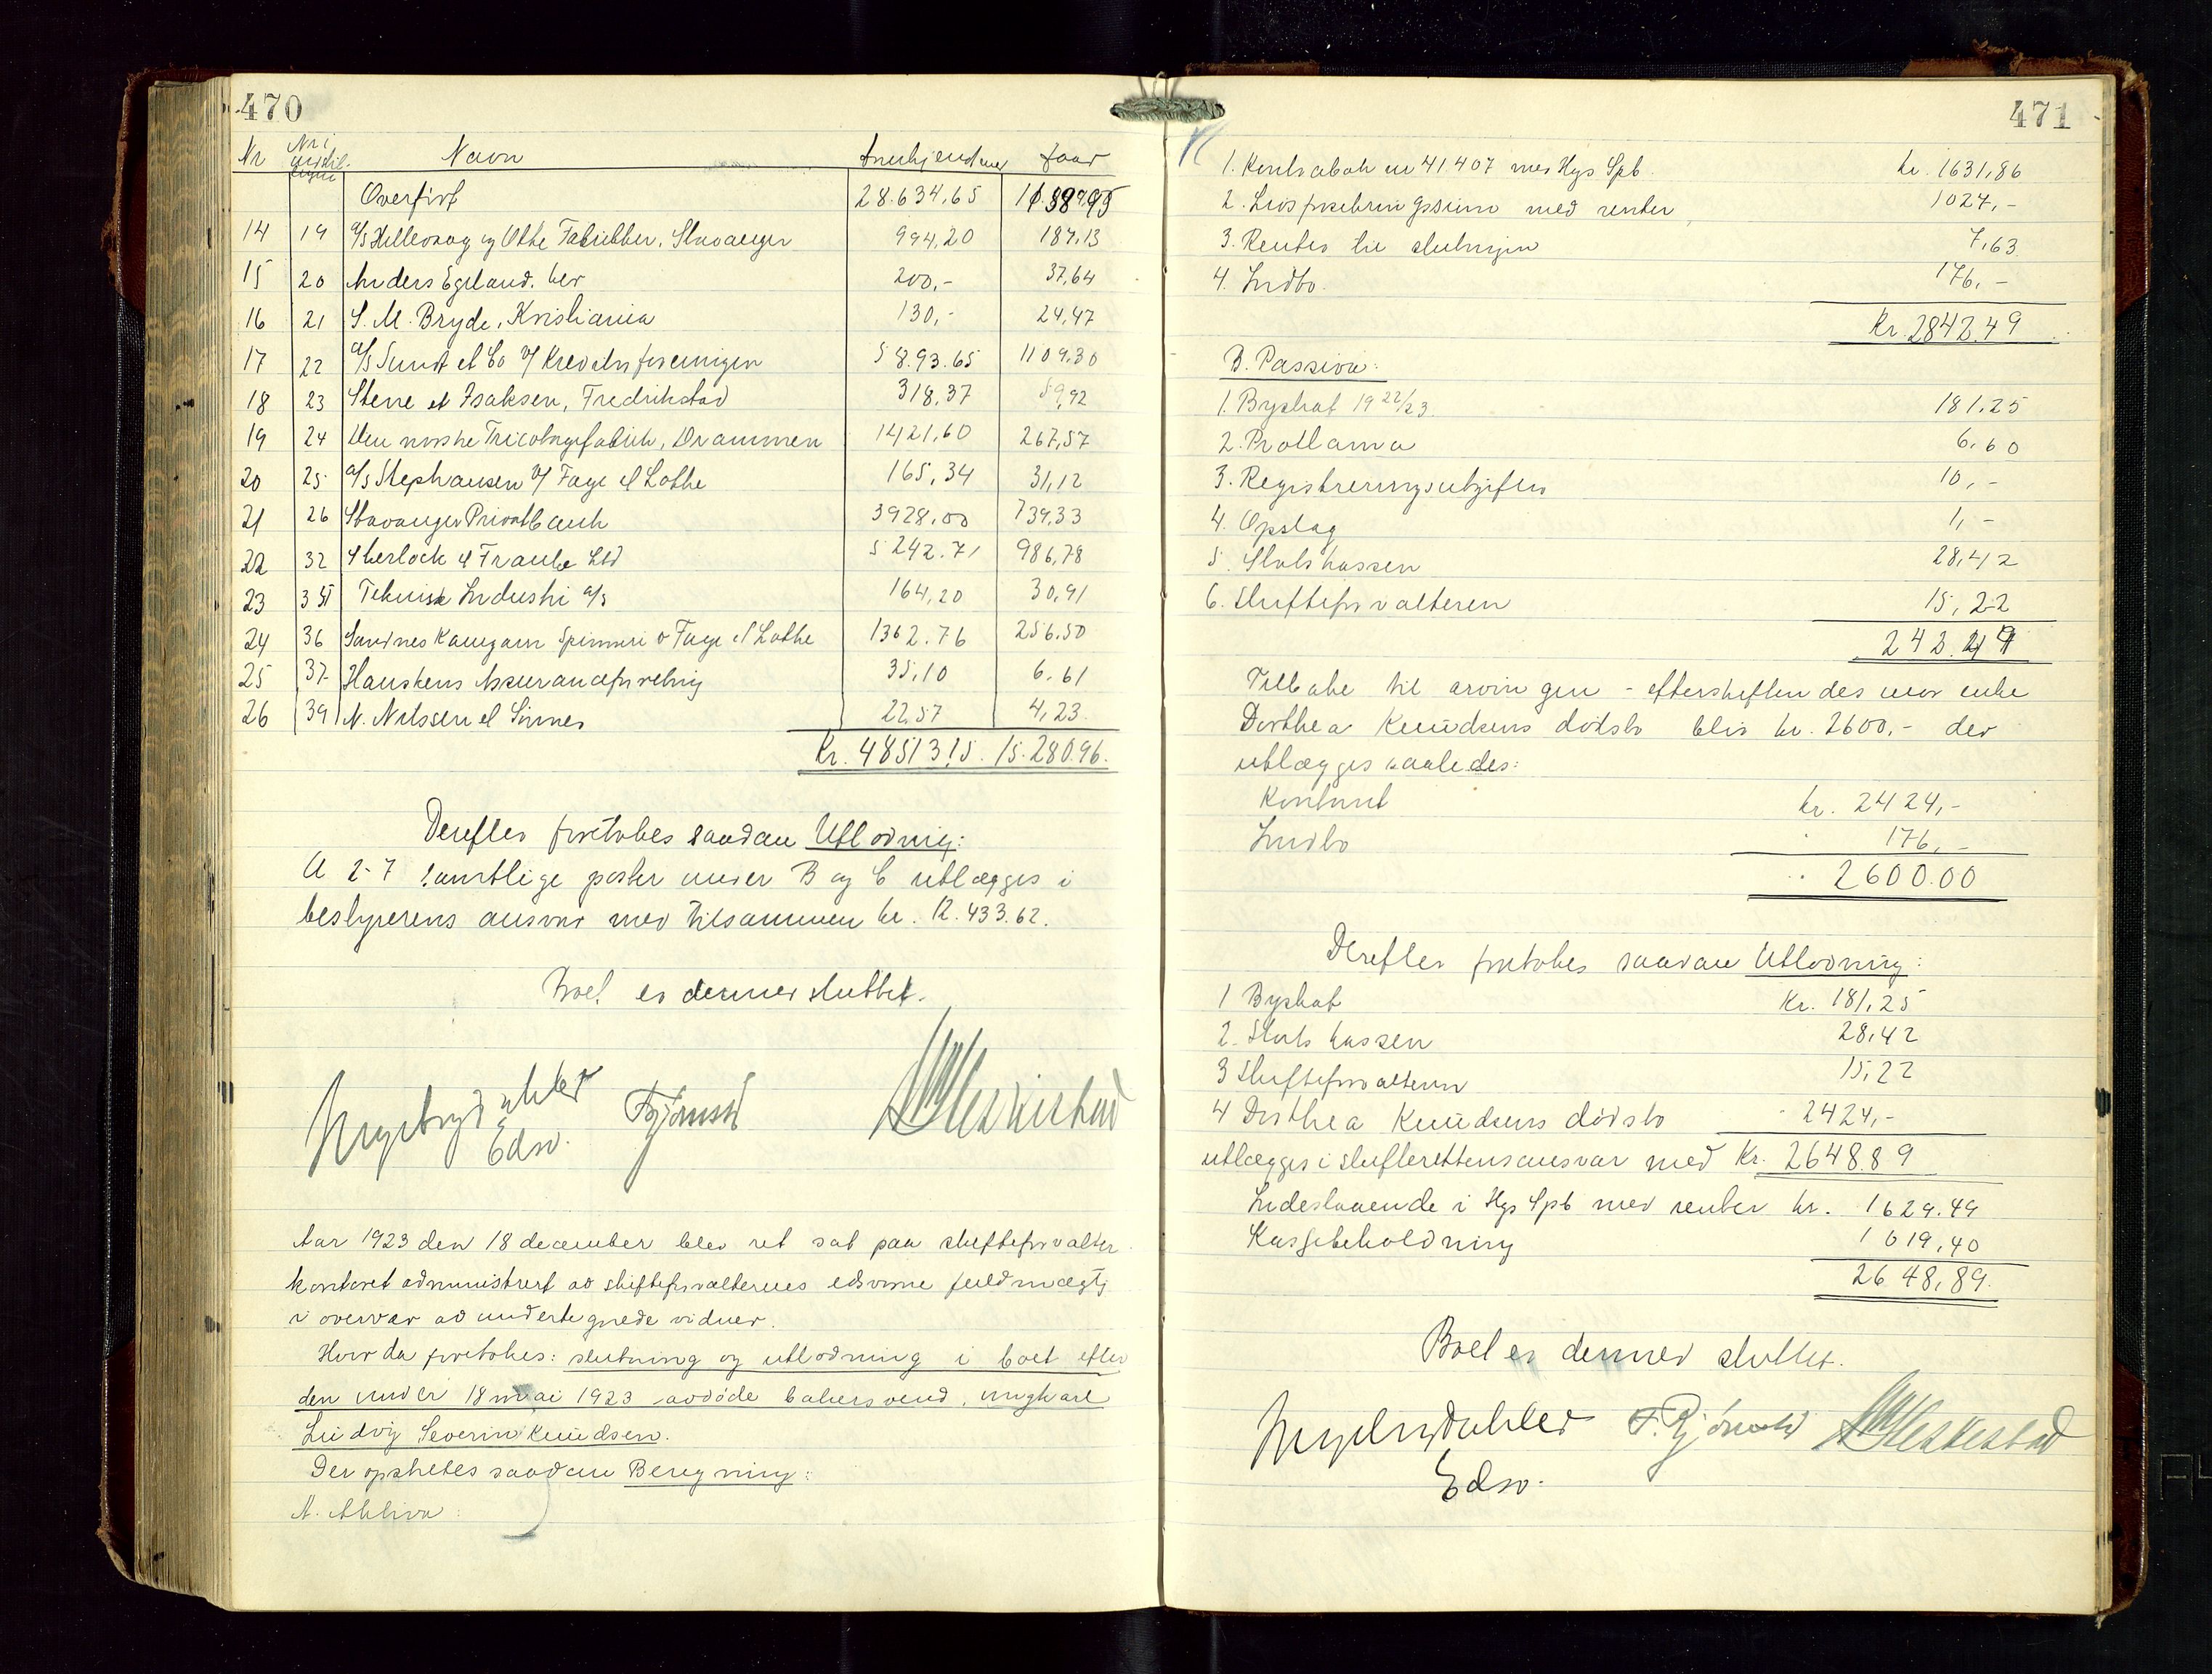 470
Nr Nr i Navn Anerkjendes Faar
Overført 28.634,65 11.389,95
14 19 A/S Hillevaag og Olthe Fabrikker, Stavanger 994,20 187,13
15 20 Anders Egeland, her 200,- 37,64
16 21 S. M. Bryde, Kristiania 130,- 24,47
17 22 A/S Sundt et Co v/ Kreditorforeningen 5893.65 1109,30
18 23 Stene et Isaksen, Fredrikstad 318,37 59,92
19 24 Den norske Tricotagefabrik, Drammen 1421,60 267,57
20 25 A/S Stephansen v/ Faye et Lothe 165,34 31,12
21 26 Stavanger Privatbank 3928,00 739,33
22 32 Sherlock et Traube Ltd 5242.71 986,78
23 35 Teknisk Industri A/S 164,20 30,91
24 36 Sandnes Kamgarn Spinneri v Faye et Lothe 1362.76 256.50
25 37 Hauskens Assuranceforretning 35,10 6,61
26 39 N. Nilssen et Sønner 22,57 4,23
Kr. 48513,15. 15.280.96.
Derefter foretokes saadan Utlodning:
A 2-7 samtlige poster under B og C utlægges i
bestyrerens ansvar med tilsammen kr. 12.433.62.
Boet er dermed sluttet.
Edsv.
Aar 1923 den 18 december blev ret sat paa skifteforvalter
kontoret administrert av skifteforvalterens edsvorne fuldmægtig
i overvær av undertegnede vidner.
Hvor da foretokes: slutning og utlodning i boet efter
den under 18 mai 1923 avdøde bakersvend, ungkarl
Ludvig Severin Knudsen.
Der opsattes saadan Beregning:
A. Aktiva:
471
1. Kontrabok nr 41.407 med Hgs Spb. kr. 1631,86
2. Livsforsikringssum med renter 1027,-
3. Renter til slutningen 7,63
4. Indbo. 176,-
Kr. 2842.49
B. Passiva:
1. Byskat 1922/23. 181.25
2. Proklama 6,60
3. Registreringsutgifter 10,-
4. Opslag 1,-
5. Statskassen 28,42
6. Skifteforvalteren 15,22
242.49
Tilbake til arvingen - efterskiftendes mor enke
Dorthea Knudsens dødsbo blir kr. 2600,- der
utlægges saaledes:
Kontant kr. 2424,-
Indbo 176,-
2600.00
Derefter foretokes saadan Utlodning:
1 Byskat Kr. 181,25
2. Statskassen 28,42
3 Skifteforvalteren 15,22
4 Dorthea Knudsens dødsbo 2424,-
utlægges i skifterettens ansvar med Kr. 2648.89
Indestaaende i Hgs Spb med renter kr. 1629.49
Kassebeholdning 1019,40
2648,89.
Boet er dermed sluttet.
Edsv.